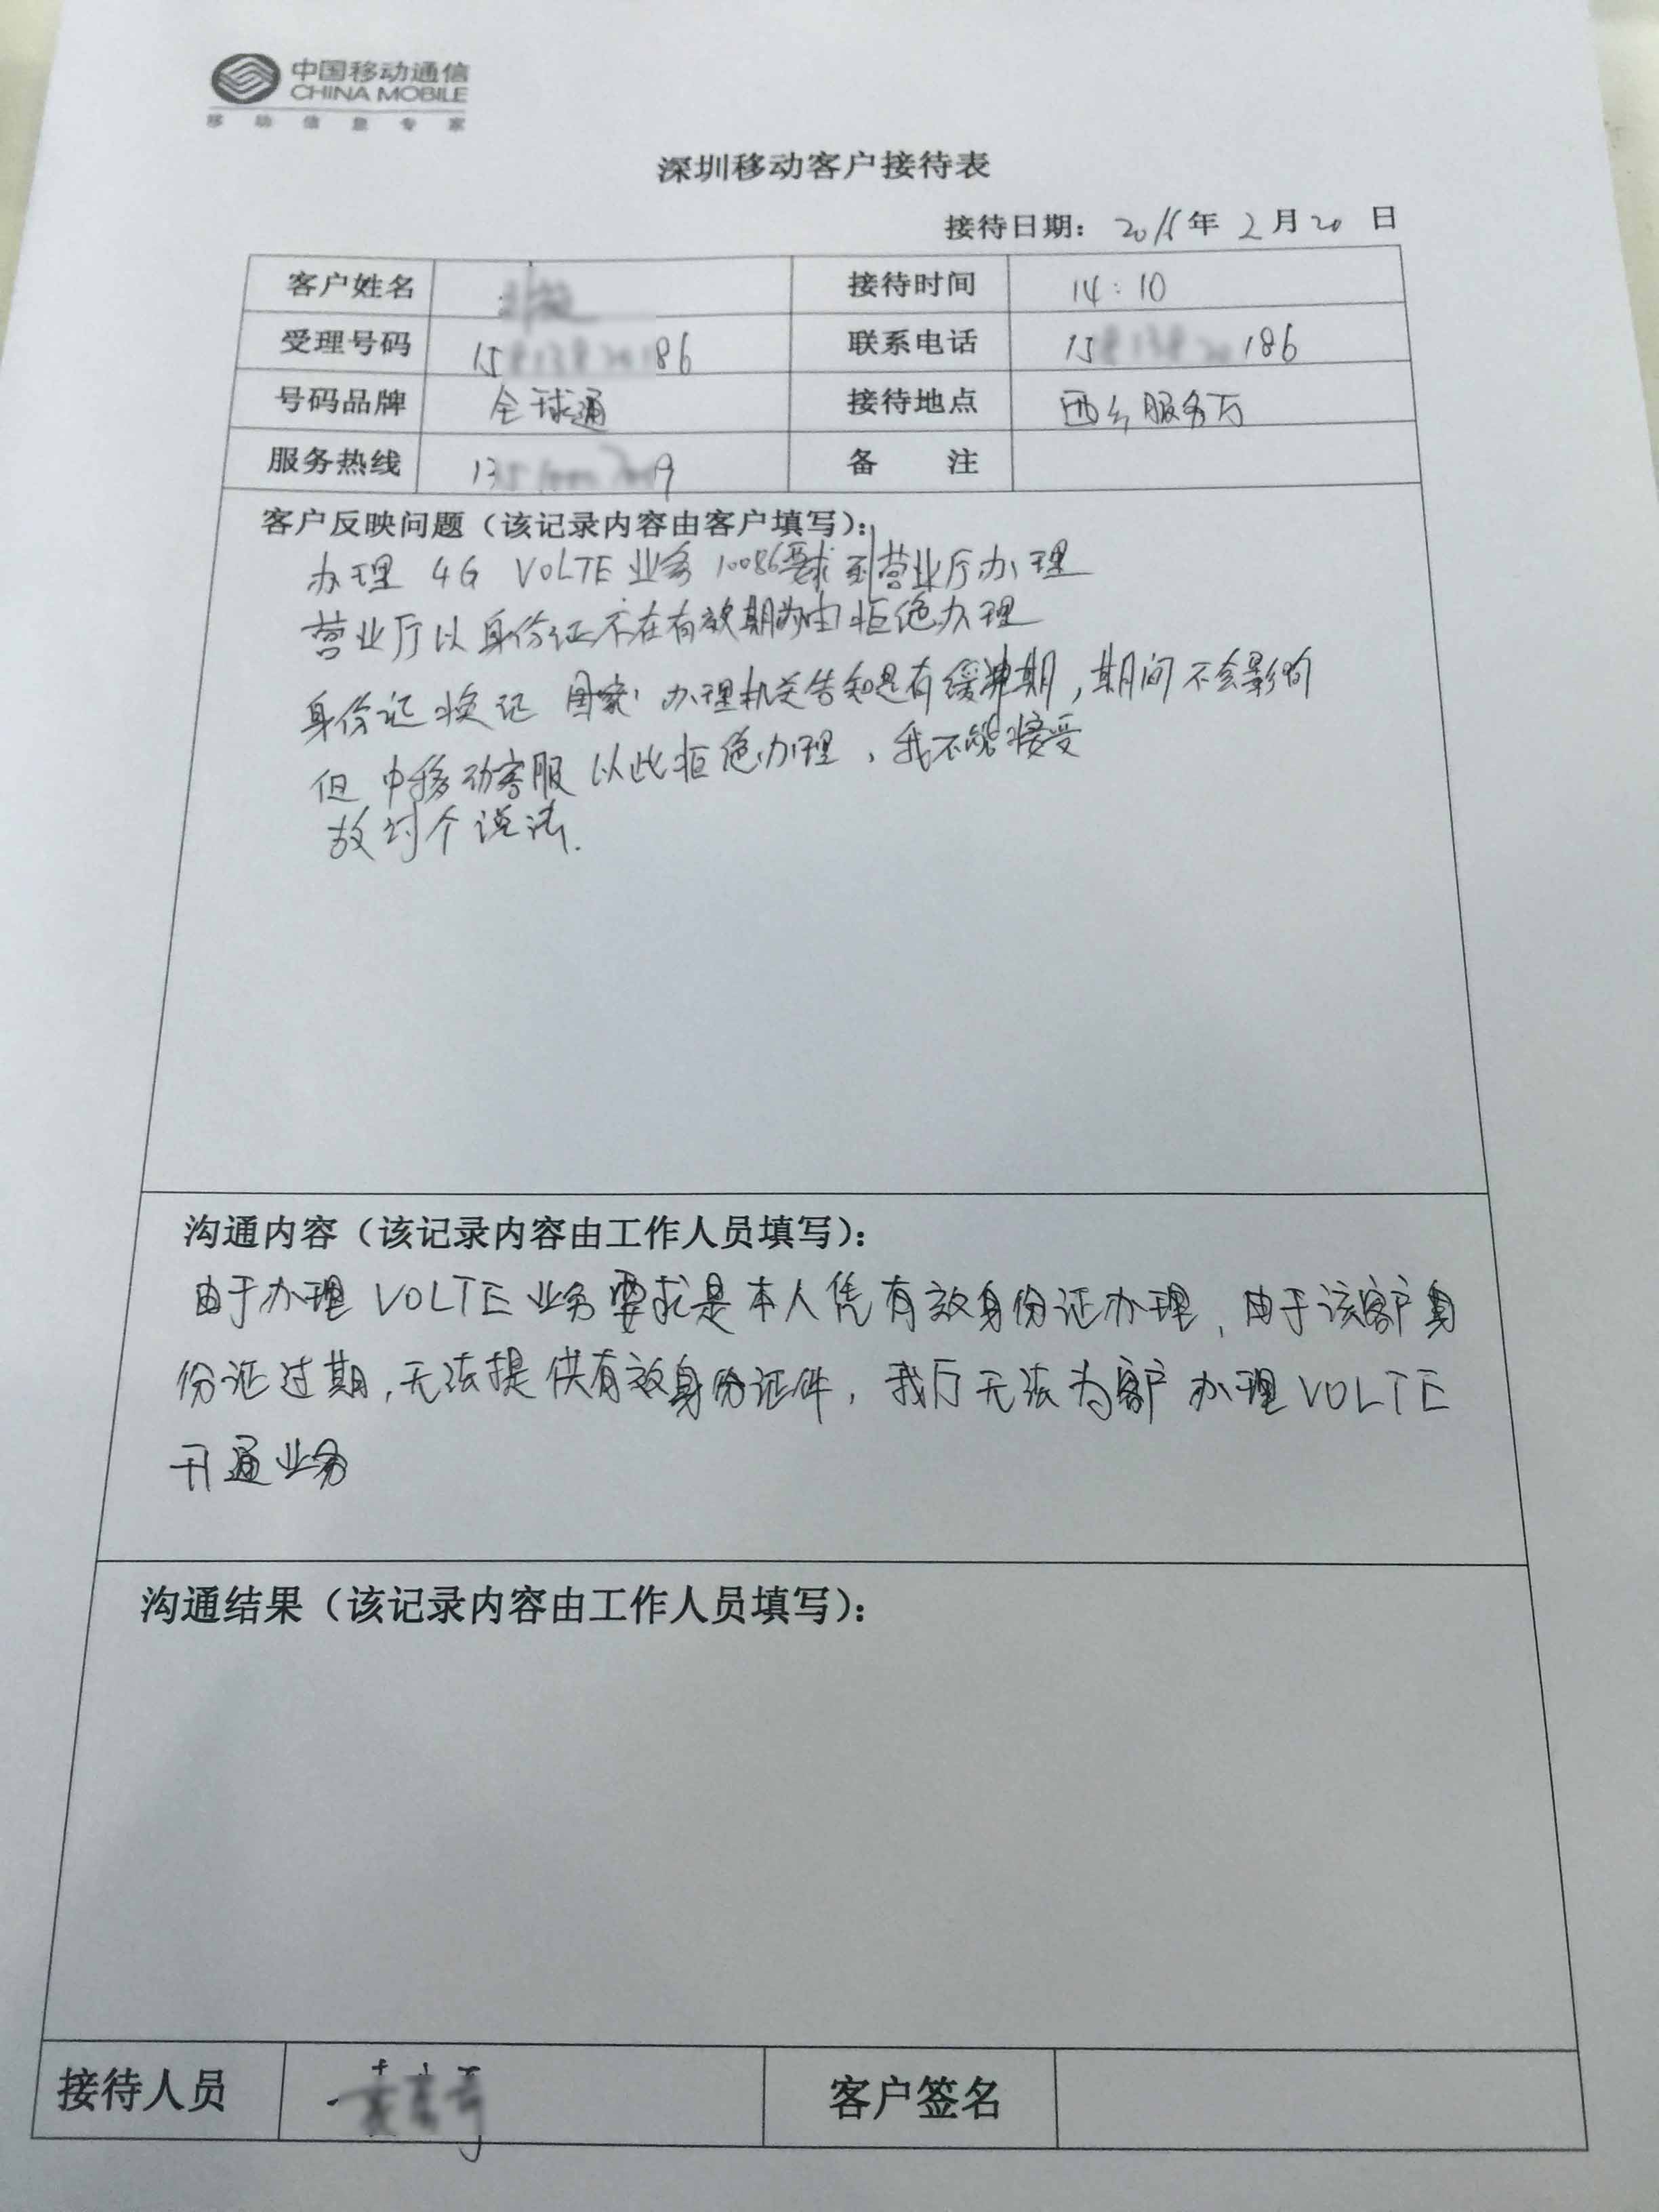 中国移动通信
CHINA MOBILE
移动信息专家
深圳移动客户接待表
接待日期: 2016年2月20日
客户姓名 接待时间 14:10
受理号码 15 86 联系电话 15 186
号码品牌 全球通 接待地点 西乡服务厅
服务热线 13 9 备 注
客户反映问题（该记录内容由客户填写）：
办理 4G VOLTE 业务 10086要求到营业厅办理
营业厅以身份证不在有效期为由拒绝办理
身份证换证 国家办理机关告知是有缓冲期，期间不会影响
但中移动客服以此拒绝办理，我不能接受
故讨个说法.
沟通内容（该记录内容由工作人员填写）：
由于办理 VOLTE 业务要求是本人凭有效身份证办理，由于该客户身
份证过期，无法提供有效身份证件，我厅无法为客户办理VOLTE
开通业务
沟通结果（该记录内容由工作人员填写）：
接待人员 客户签名